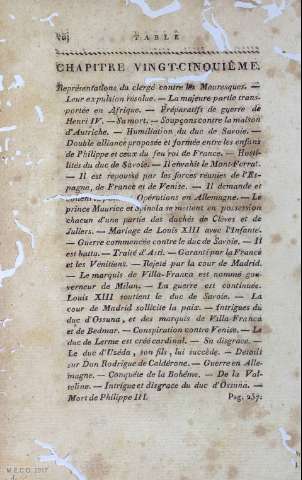 TABLE
CHAPITRE VINGT-CINQUIÈME.
Représentations du clergé contre les Mauresques. —
Leur expulsion résolue. — La majeure partie trans-
portée en Afrique. — Préparatifs de guerre de
Henri IV. — Sa mort. — Soupçons contre la maison
d'Autriche. — Humiliation du duc de Savoie. —
Double alliance proposée et formée entre les enfans
de Philippe et ceux du feu roi de France. — Hosti-
lités du duc de Savoie. — Il envahit le Mont-Ferrat.
— Il est repoussé par les forces réunies de l'Es-
pagne, de France et de Venise. — Il demande et
Opérations en Allemagne. — Le
prince Maurice et Spinola se mettent en possession
chacun d'une partie des duchés de Clèves et de
Juliers. — Mariage de Louis XIII avec l'Infante.
— Guerre commencée contre le duc de Savoie. — Il
est battu. — Traité d'Asti. — Garanti par la France
et les Vénitiens. — Rejeté par la cour de Madrid.
— Le marquis de Villa-Franca est nommé gou-
verneur de Milan. — La guerre est continuée.
Louis XIII soutient le duc de Savoie. — La
cour de Madrid sollicite la paix. — Intrigues du
duc d'Ossuna, et des marquis de Villa-Franca
et de Bedmar. — Conspiration contre Venise. — Le
duc de Lerme est créé cardinal. — Sa disgrace. —
Le duc d'Uzéda, son fils, lui succède. — Détails
sur Don Rodrigue de Caldérone. — Guerre en Alle-
magne. — Conquête de la Bohême. — De la Val-
teline. — Intrigue et disgrace du duc d'Ossuna. —
Mort de Philippe III. Pag. 257.
M.E.C.D. 2017